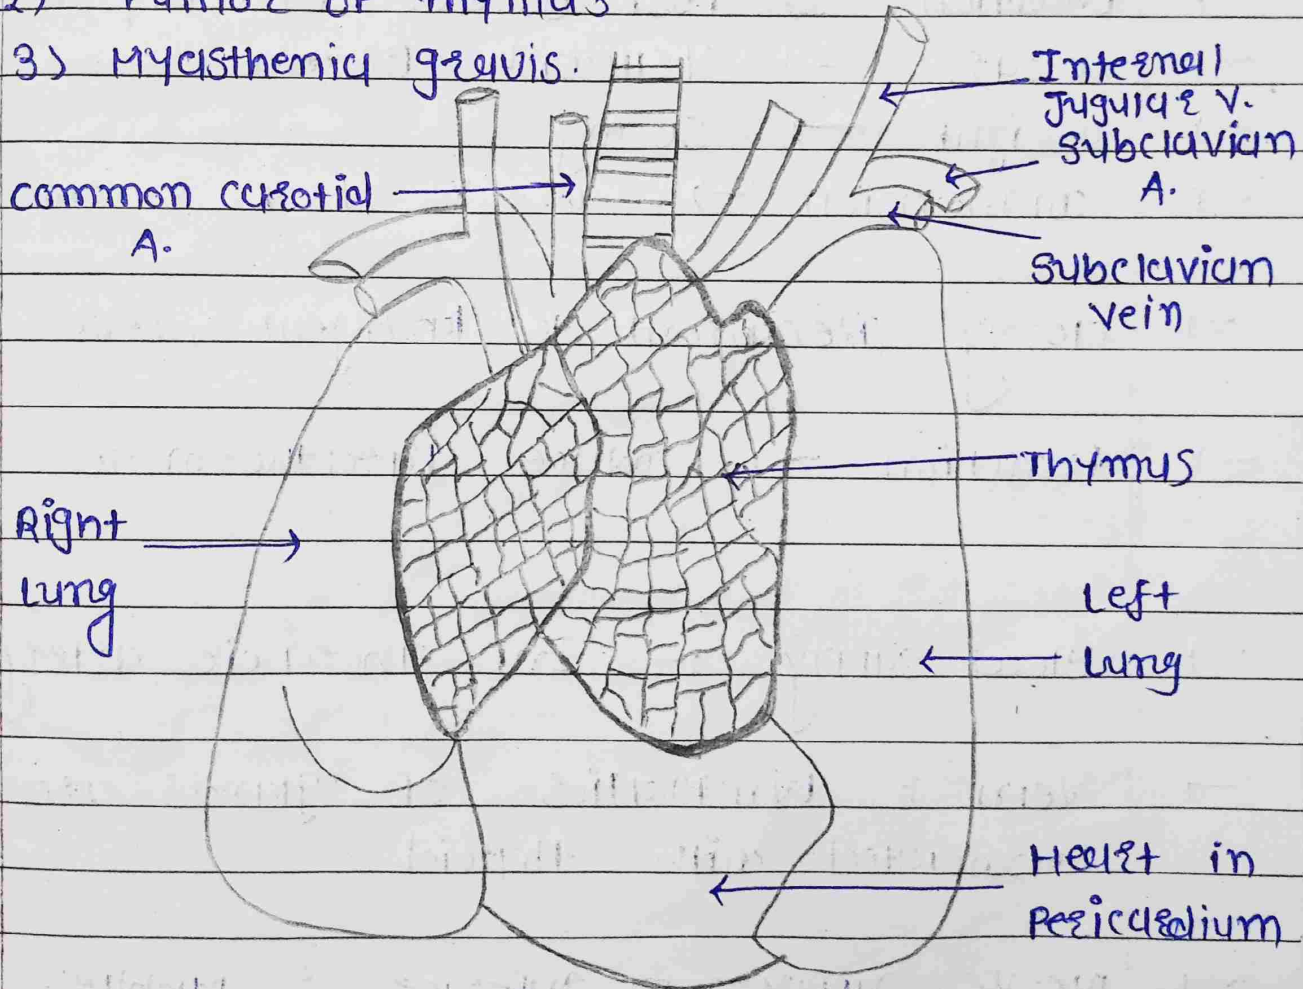 2) Tumor of Thymus
3) Myasthenia gravis.
Internal
Jugular V.
Subclavian
A.
common carotid
A.
Subclavian
vein
Thymus
Right
Lung
Left
Lung
Heart in
Pericardium